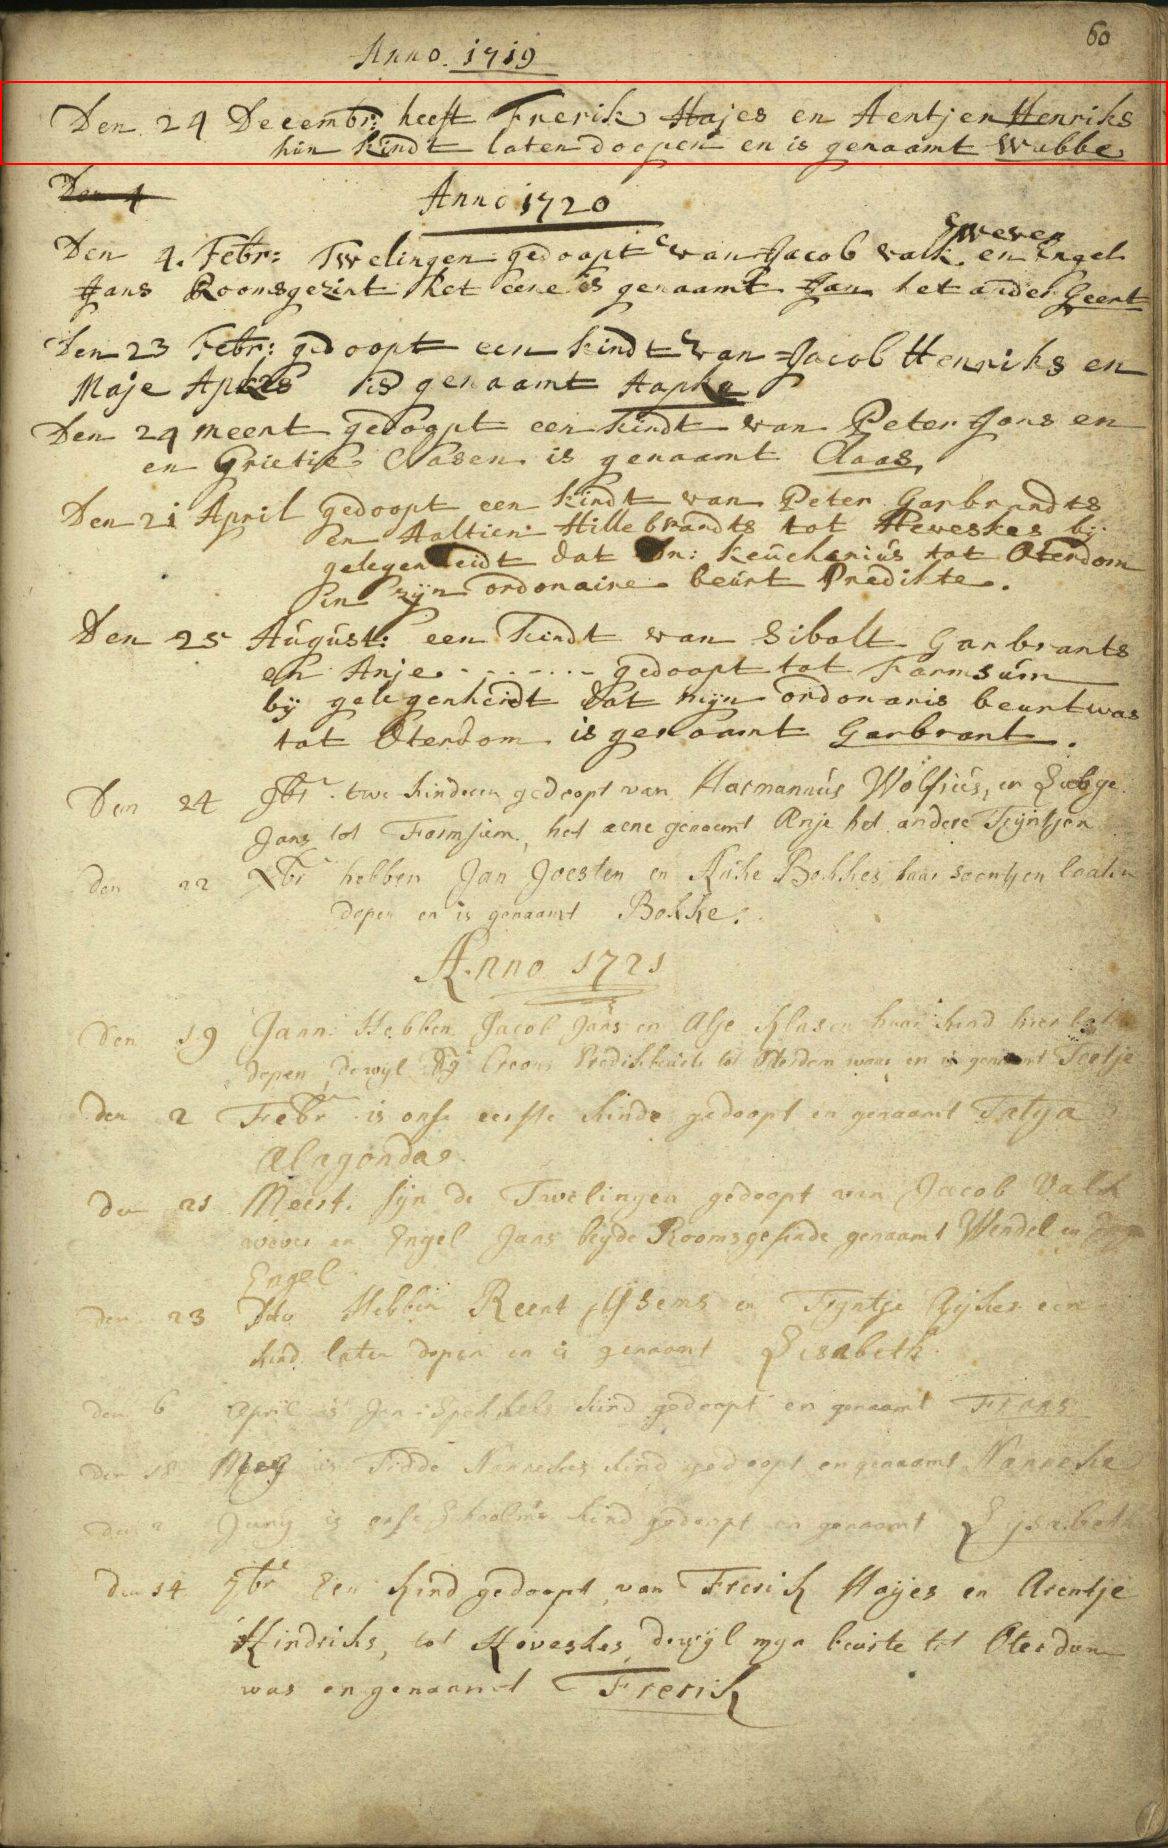 60
Anno 1719
Den 24 Decembr: heeft Frerik Hajes en Aentjen Henriks
hún kindt laten doopen en is genaamt Wubbe
Den 4
Anno 1720
wever
Den 4. Febr: Twelingen gedoopt van Jacob Valk en Engel
Jans Roomsgezint het eene is genaamt Jan het ander Geert
Den 23 Febr: gedoopt een kindt van Jacob Henriks en
Maje Apkes is genaamt Aapke
Den 24 meert gedoopt een kindt van Peter Jans en
en Grietie Clasen is genaamt Claas
Den 21 April gedoopt een kindt van Peter Garbrandts
en Aaltien Hillebrandts tot Heweskes bij
gelegenheidt dat Dn: Keúcheniús tot Oterdom
in zijn ordonaire beúrt Predikte.
Den 25 Aúgúst: een kindt van Sibolt Garbrants
en Anje ........ gedoopt tot Farmsúm
bÿ gelegenheidt dat mijn ordonaris beurt was
tot Oterdom is genaamt Garbrant.
Den 24 9br. twe kinderen gedoopt van Harmannús Wolfiús, en
Jans tot Farmsum, het eene genoemt Anje het andere Trijntjen
den 22 Xbr hebben Jan Joesten en Auke Bokkes haar soontjen laaten
dopen en is genaamt Bokke.
Anno 1721
Den 19 Jann. Hebben Jacob Jans en Alje Klasen haar kind hier laten
dopen, dewyl tot Oterdom was en is genaamt
den 2 Febr is onse eerste kindt gedoopt en genaamt
Alagonda
den 21 Meert. sijn de Twelingen gedoopt van Jacob Valck
wever en Engel Jans beyde Roomsgesinde genaamt Wendel en
Engel
den 23 Dito Hebben Reent en Tryntje een
kind laten dopen en is genaamt Lisabeth
den 6 April is Jan kind gedoopt en genaamt Frans
den 18 Mey is Fidde Nannekes kind gedoopt en genaamt Nanneke
den 2 Juny is onse Schoolmr kind gedoopt en genaamt Lysabeth
den 14 7br Een kind gedoopt van Frerik Hayes en Arentje
Hindriks, tot Heveskes, dewyl myn beurte tot Oterdum
was en genaamt Frerik